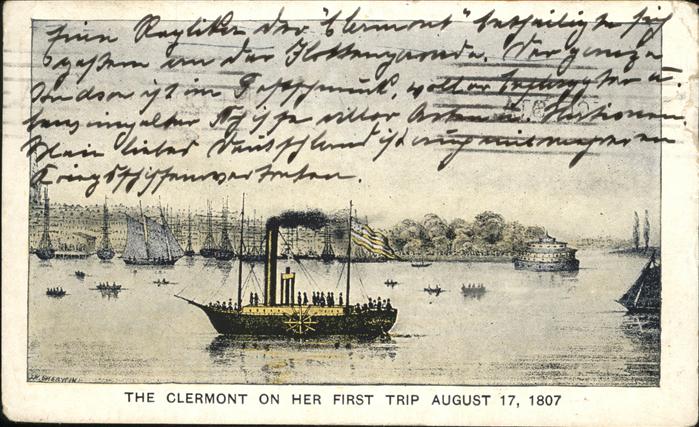 Eine Replika der "Clermont" betheiligte sich
gestern an der Flottenparade. Der ganze
Hudson ist im Festschmuck, voller beflaggter u.
Schiffe aller Arten u. Nationen.
Mein liebes Deutschland ist auch mit mehreren
Kriegsschiffen vertreten.
THE CLERMONT ON HER FIRST TRIP AUGUST 17, 1807